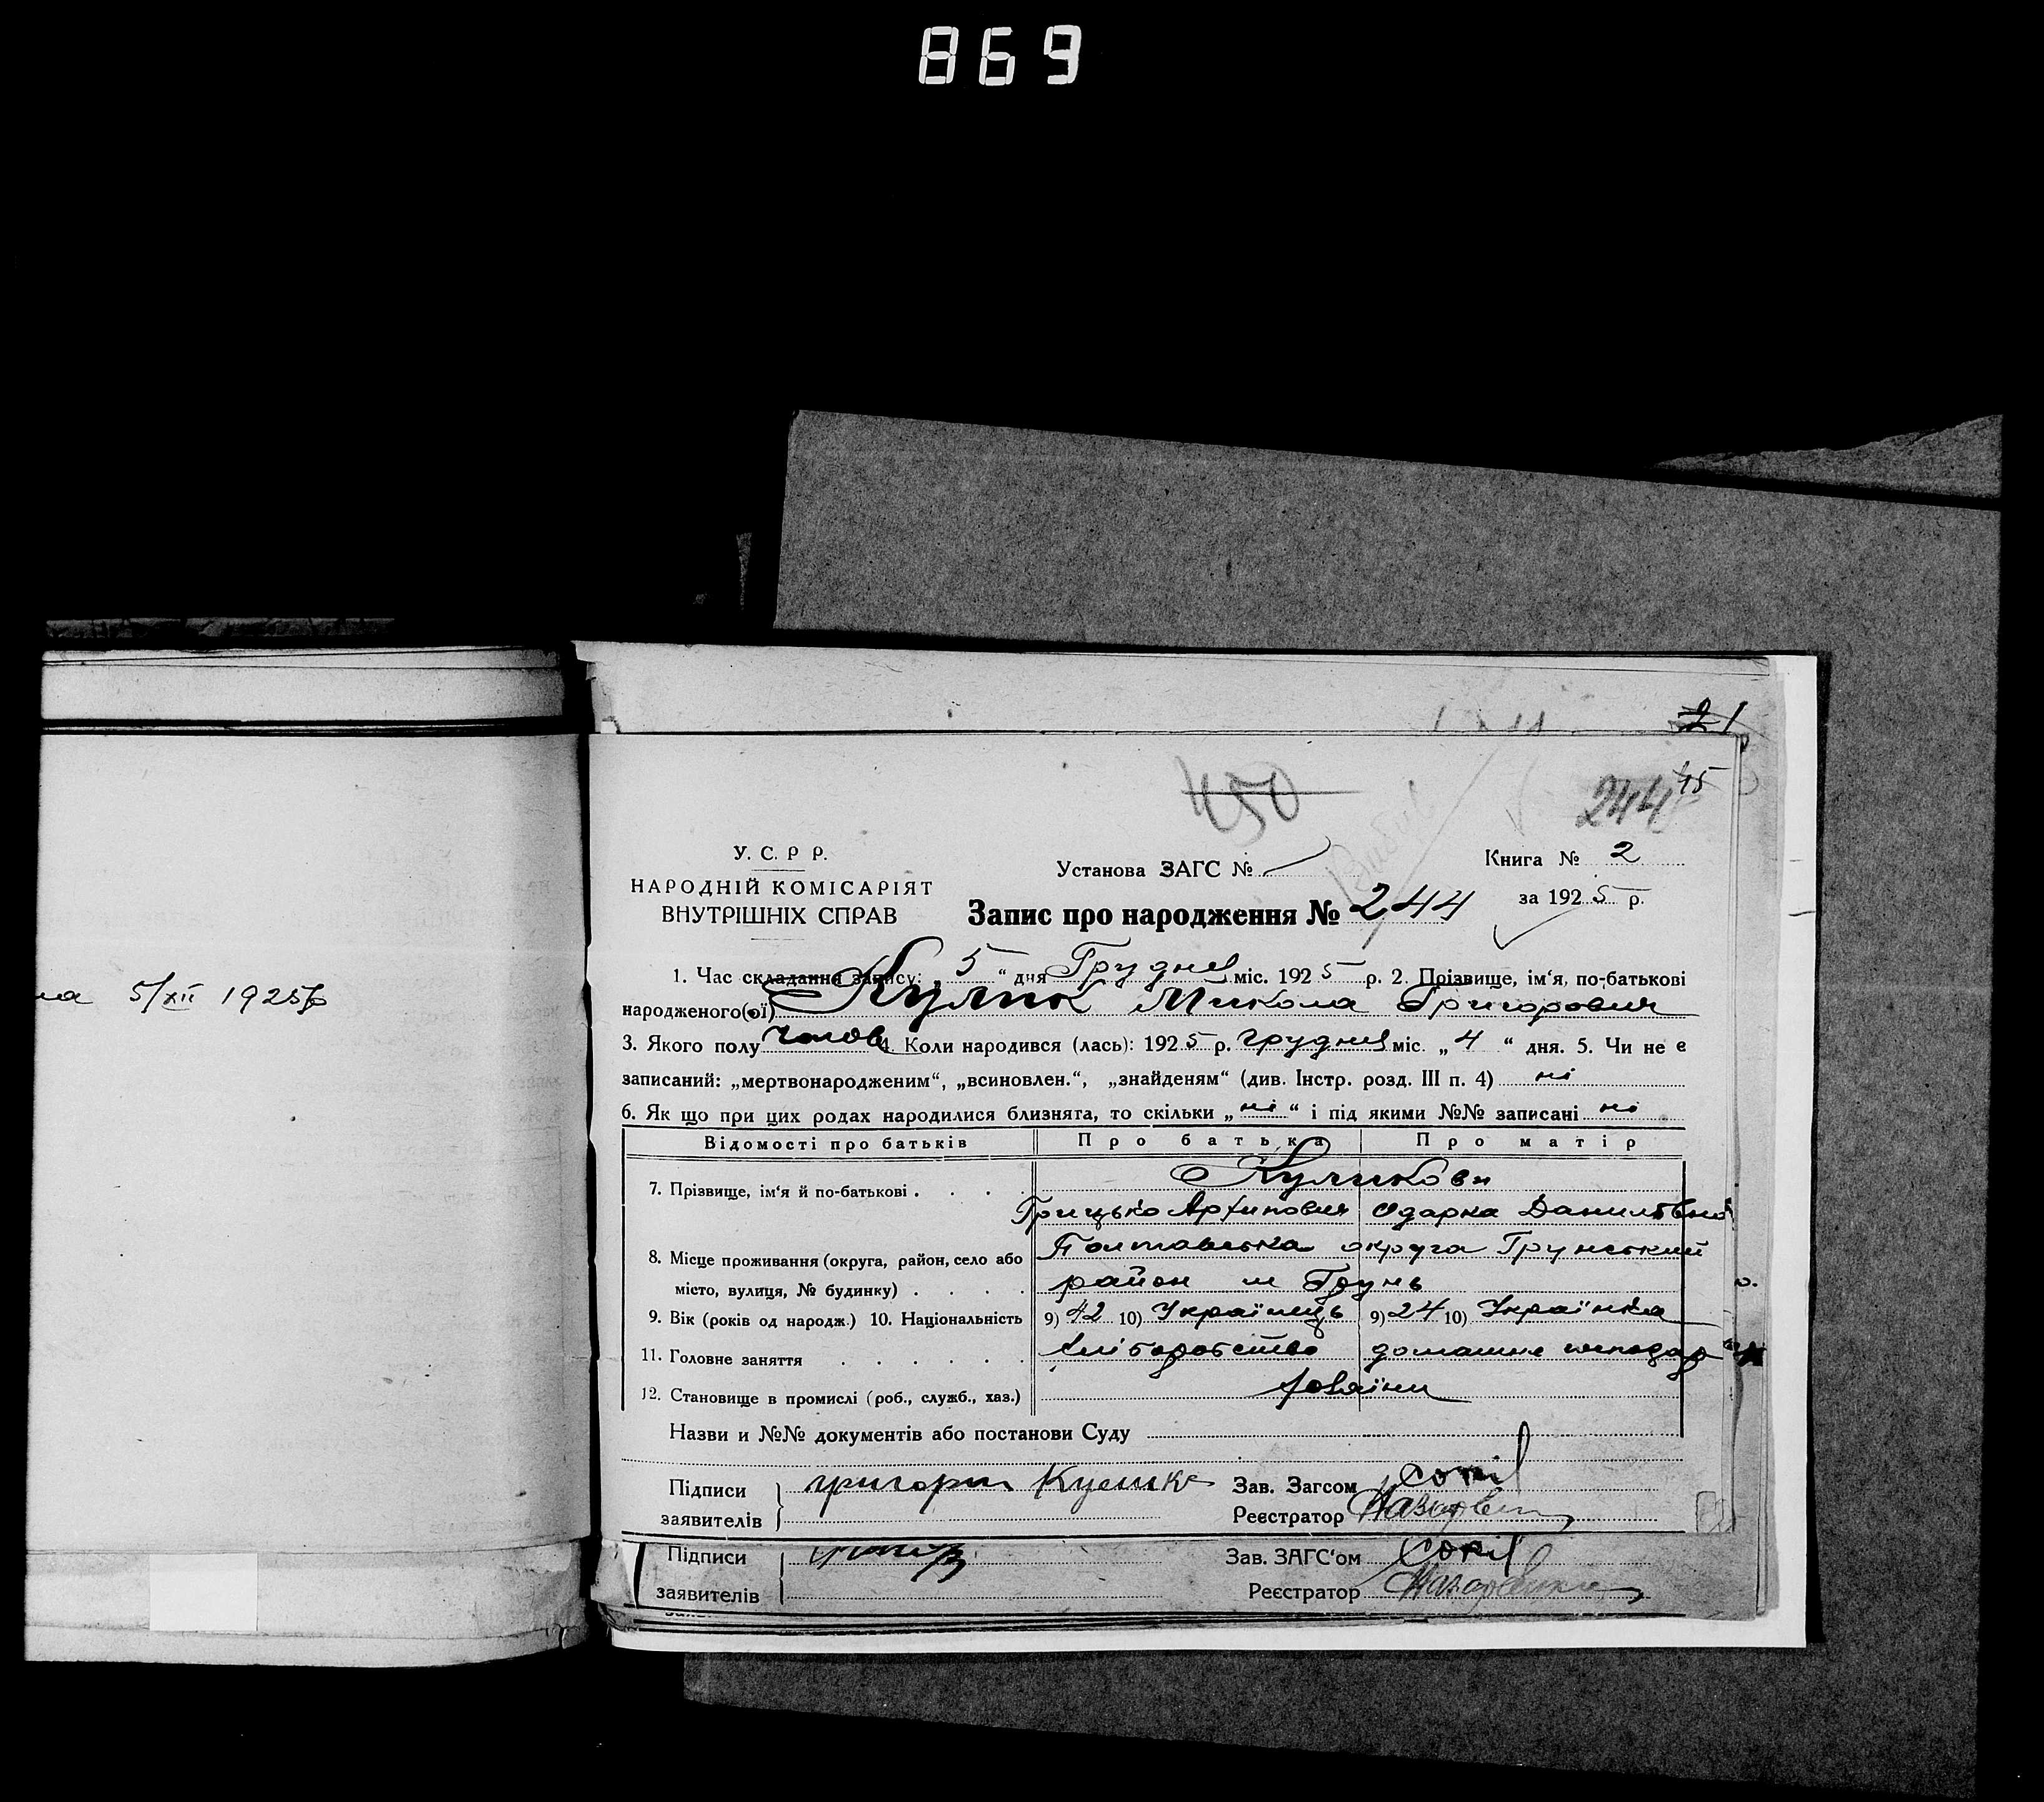 869
21
45
450
244
У. С. Р Р.
НАРОДНІЙ КОМІСАРІЯТ
ВНУТРІШНІХ СПРАВ
Установа ЗАГС №
Книга № 2
за 1925 р.
Запис про народження № 244
1. Час складання запису: „ 5 “ дня Грудня міс. 1925 р. 2. Прізвище, ім‘я, по-батькові
народженого(ої) Кулик Микола Григорович
3. Якого полу чолов 4. Коли народився (лась): 1925 р. грудня міс. „ 4 “ дня. 5. Чи не є
записаний: „мертвонародженим“, „всиновлен.“, „знайденям“ (див. Інстр. розд. III п. 4) ні
6. Як що при цих родах народилися близнята, то скільки „ ні “ і під якими №№ записані ні
Відомості про батьків Про батька Про матір
7. Прізвище, ім‘я й по-батькові . . . . Куликови
Грицько Архипович Одарка Данилівна
8. Місце проживання (округа, район, село або Полтавська округа Грунський
місто, вулиця, № будинку) . . . . район м Грунь
9. Вік (років од народж.) 10. Національність 9) 42 10) Українець 9) 24 10) Українка
11. Головне заняття . . . . . . хліборобство домашнє господар
12. Становище в промислі (роб., служб., хаз.) хазяїни
Назви и №№ документів або постанови Суду
Підписи Григорій Кулик Зав. Загсом Сокіл
заявителів Реєстратор
Підписи Зав. ЗАГС‘ом Сокіл
заявителів Реєстратор
на 5/XII 1925 р